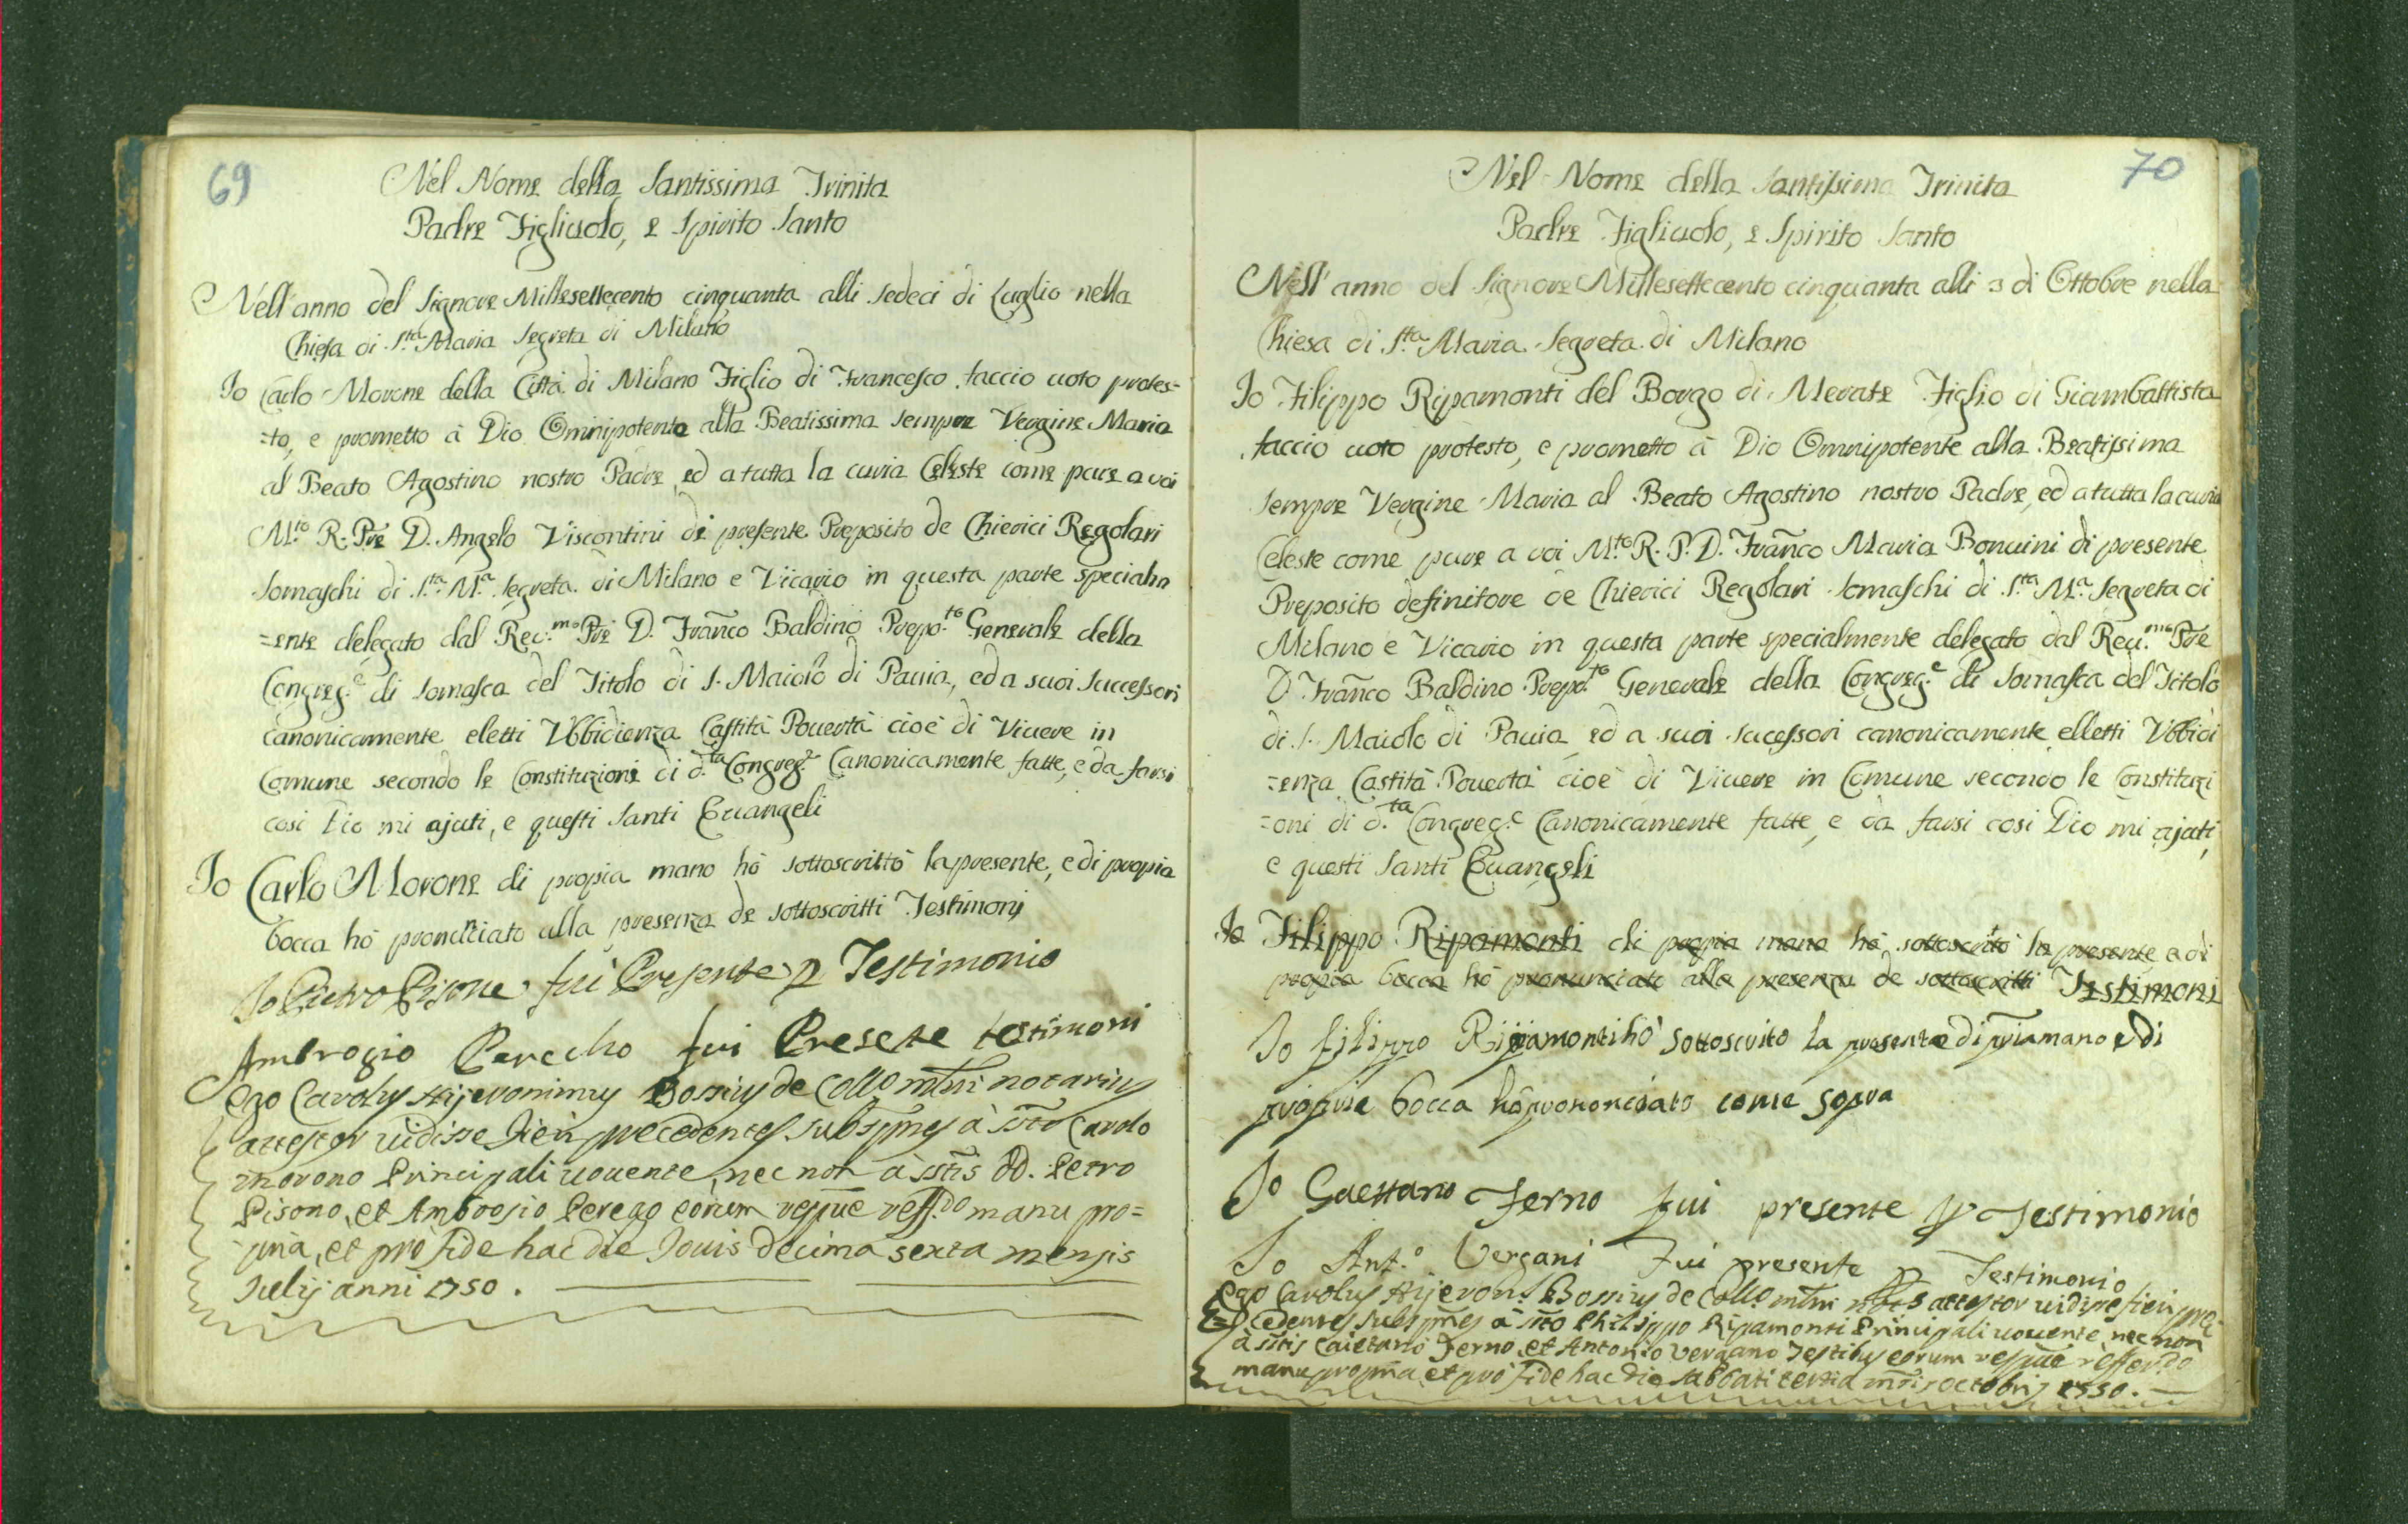 69
Nel Nome della Santissima Trinita
Padre Figliuolo, e Spirito Santo
Nell'anno del Signore Millesettecento cinquanta alli sedeci di Luglio nella
Chiesa di S.ta Maria Segreta di Milano
Io Carlo Morone della Città di Milano Figlio di Francesco faccio uoto protes=
=to, e prometto à Dio Omnipotente alla Beatissima sempre Vergine Maria
al Beato Agostino nostro Padre, ed a tutta la curia Celeste come pure a voi
M.to R. Pre D. Angelo Viscontini di presente Preposito de Chierici Regolari
Somaschi di S.ta M.a Segreta di Milano e Vicario in questa parte specialm
=ente delegato dal Reu.mo Pre D. Franco Baldino Prepo.to Generale della
Congreg.e di Somasca del Titolo di S. Maiolo di Pauia, ed a suoi Successori
canonicamente eletti Vbbidienza Castità Pouertà cioè di Viuere in
Comune secondo le Constituzioni di d.ta Congreg.e Canonicamente fatte, e da farsi
cosi Dio mi ajuti, e questi Santi Euangeli
Io Carlo Morone di propia mano hò sottoscritto la presente, e di propia
bocca hò pronunciato alla presenza de sottoscritti Testimonj
Io Pietro Pisone fui Presente p Testimonio
Ambrogio Perecho fui Presete testimoni
Ego Carolus Hijeronimus Bossius de Coll.o mlni notarius
attestor uidisse fieri precedentes subspnes à sto Carolo
Morono Principali uouente, nec non à sstis DD. Petro
Pisono, et Ambrosio Perego eorum respue reff.do manu pro=
=pria, et pro fide hac die Jouis decima sexta mensis
Julij anni 1750.
70
Nel Nome della Santissima Trinita
Padre Figliuolo, e Spirito Santo
Nell'anno del Signore Millesettecento cinquanta alli 3 di Ottobre nella
Chiesa di S.ta Maria Segreta di Milano
Io Filippo Ripamonti del Borgo di Merate Figlio di Giambattista
faccio uoto protesto, e prometto à Dio Omnipotente alla Beatissima
sempre Vergine Maria al Beato Agostino nostro Padre, ed a tutta la curia
Celeste come pure a voi M.to R. P. D. Franco Maria Bonuini di presente
Preposito definitore de Chierici Regolari Somaschi di S.ta M.a Segreta di
Milano e Vicario in questa parte specialmente delegato dal Reu.mo Pre
D. Franco Baldino Prepo.to Generale della Congreg.e di Somasca del Titolo
di S. Maiolo di Pauia ed a suoi sucessori canonicamente elletti Vbbidi
=enza Castità Pouertà cioè di Viuere in Comune secondo le Constituzi
=oni di d.ta Congreg.e Canonicamente fatte, e da farsi cosi Dio mi ajuti,
e questi Santi Euangeli
Io Filippo Ripamonti di propia mano hò sottoscritto la presente e di
propia bocca hò pronunciato alla presenza de sottoscritti Testimoni
Io filippo Ripamonti hò sottoscrito la presente di pria mano e di
propria bocca hò prononciato come sopra
Io Gaettano Ferno fui presente p Testimonio
Io Ant.o Vergani Fui presente p Testimonio
Ego Carolus Hijeron.s Bossius de Coll.o mlni attestor uidisse fieri pre=
=cedentes subspnes à sto Philippo Ripamonti Principali uouente, nec non
à sstis Caietano Ferno, et Antonio Vergano Testibus eorum respue reffer.do
manu propria, et pro fide hac die Sabbati tertia mensis octobris 1750.